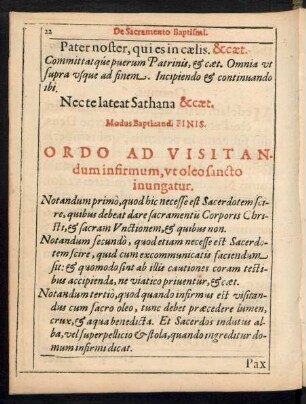 22 De Sacramento Baptismi.
Pater noster, qui es in cælis. &cæt.
Committatque puerum Patrinis, & cæt. Omnia vt
supra vsque ad finem. Incipiendo & continuando
ibi.
Nec te lateat Sathana &cæt.
Modus Baptizandi FINIS.
ORDO AD VISITAN-
dum infirmum, vt oleo sancto
inungatur.
Notandum primò, quod hic necesse est Sacerdotem sci-
re, quibus debeat dare sacramentũ Corporis Chri-
sti, & sacram Vnctionem, & quibus non.
Notandum secundò, quod etiam necesse est Sacerdo-
tem scire, quid cum excommunicatis faciendum
sit: & quomodo sint ab illis cautiones coram testi-
bus accipienda, ne viatico priuentur, & cæt.
Notandum tertiò, quod quando infirmus est visitan-
dus cum sacro oleo, tunc debet præcedere lumen,
crux, & aqua benedicta. Et Sacerdos indutus al-
ba, vel superpellicio & stola, quando ingreditur do-
mum infirmi dicat.
Pax